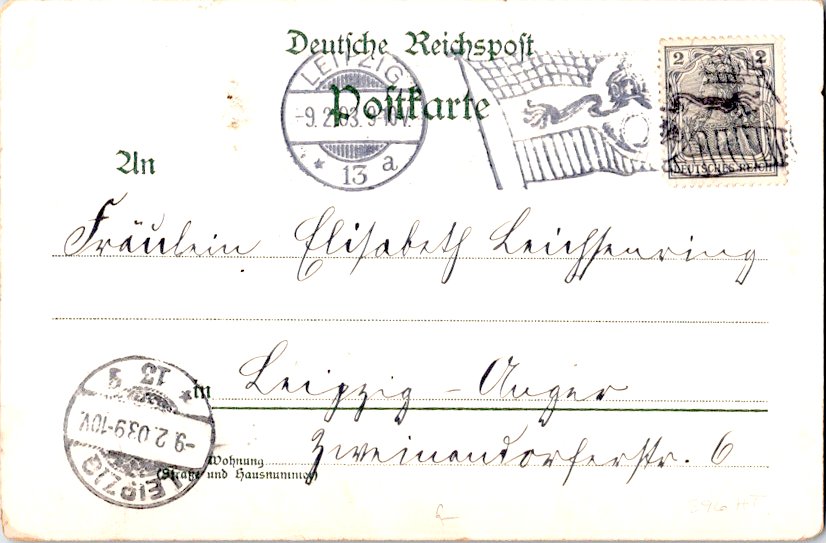 Deutsche Reichspost
LEIPZIG
Postkarte
-9.2.03.9-10V.
* 13 a
2 2
DEUTSCHES REICH
An
Fräulein Elisabeth Leichsenring
in Leipzig-Anger
Zweinaundorferstr. 6
Wohnung
(Straße und Hausnummer)
LEIPZIG
-9.2.03.9-10V.
* 13